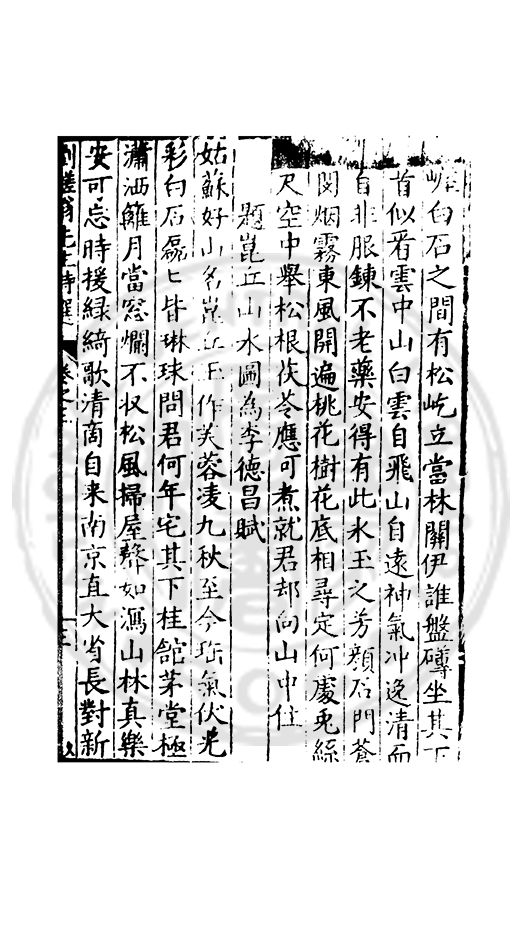 白石之間有松屹立當林關伊誰盤礡坐其下
首似看雲中山白雲自飛山自遠神氣冲逸清而
自非服鍊不老藥安得有此氷玉之芳顏石門蒼
烟霧東風開遍桃花樹花底相尋定何處兎絲
尺空中舉松根茯苓應可煮就君却向山中住
題崑丘山水圖為李德昌賦
姑蘇好山名崑丘玉作芙蓉凌九秋至今珍氣伏光
彩白石磊匕皆琳球問君何年宅其下桂館茅堂極
瀟洒籬月當窓爛不収松風掃屋聲如瀉山林真樂
安可忘時援緑綺歌清商自来南京直大省長對新
先生詩選 卷之三